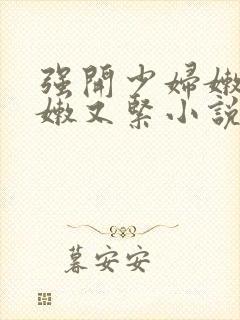 强開少婦嫩
嫩又緊小說
暮安安